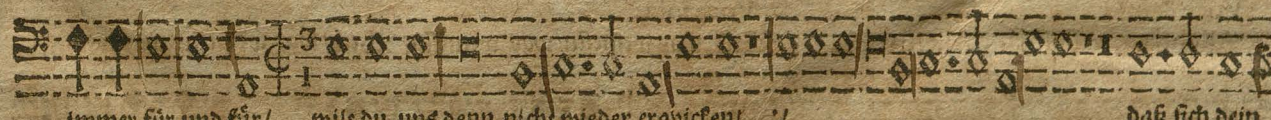 3
1
immer für und für/ wilt du uns denn nicht wieder erquicken/ :/ daß sich dein